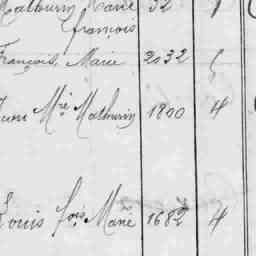 Mathurin Marie 32
françois
François, Marie 2032
Jean Mie Mathurin 1800 4
Louis fois Marie 1682 4